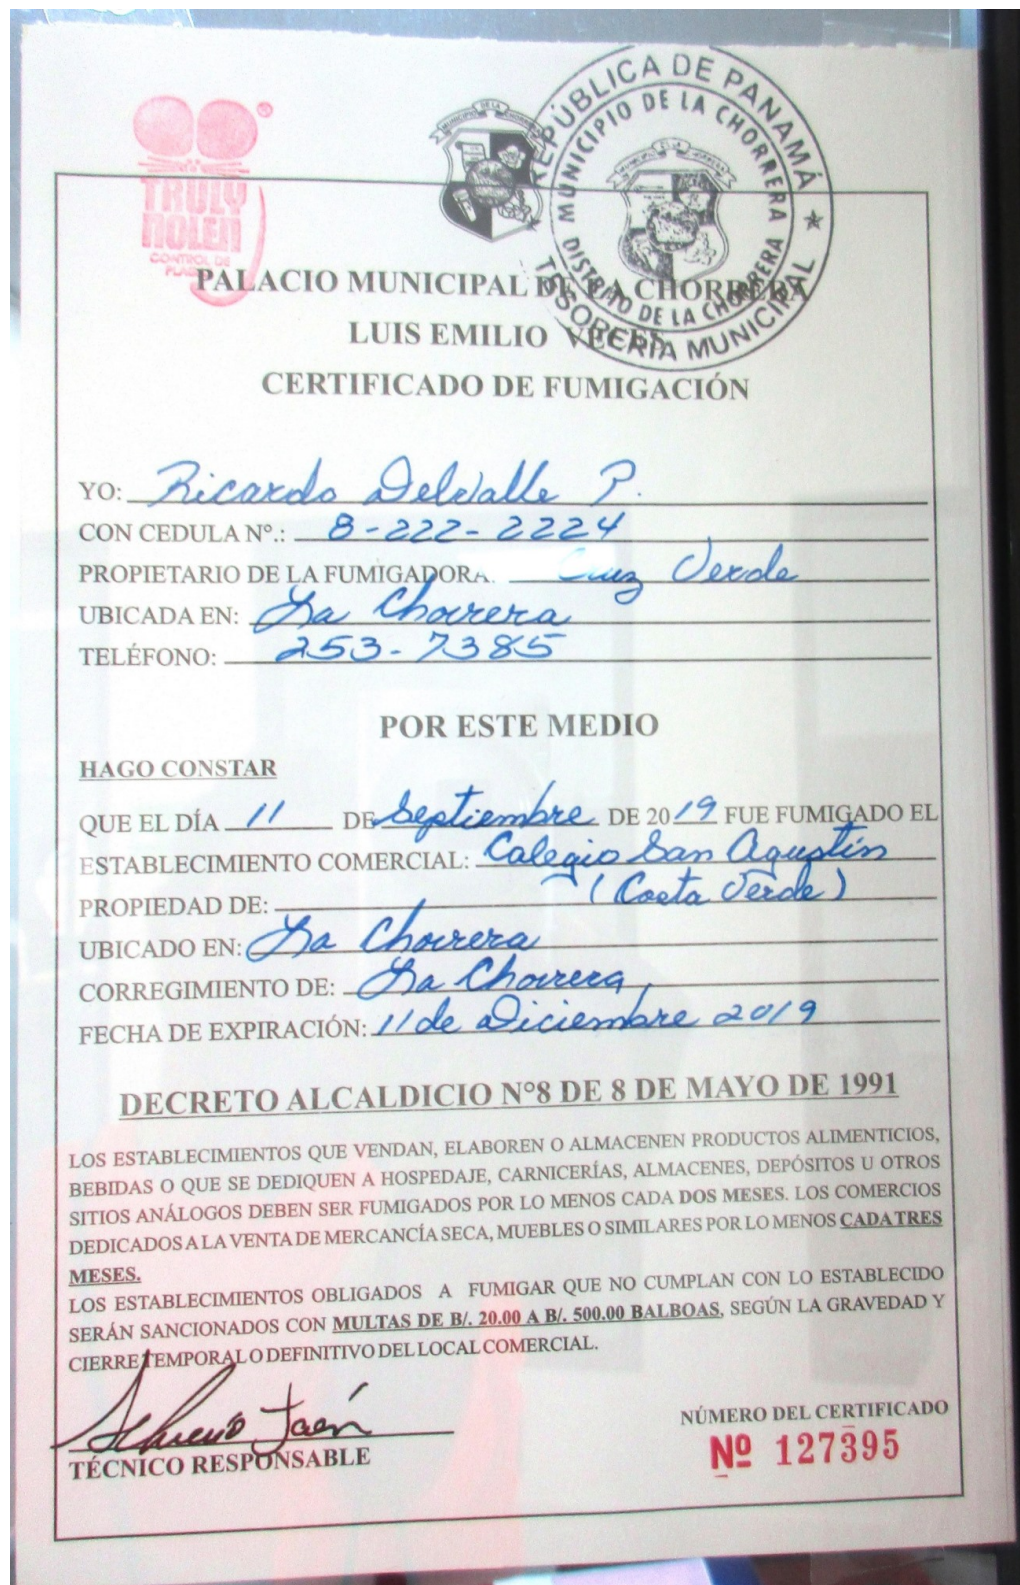 TRULY
NOLEN
CONTROL DE
PLAGAS
MUNICIPIO DE LA CHORRERA
REPÚBLICA DE PANAMÁ
MUNICIPIO DE LA CHORRERA
DISTRITO DE LA CHORRERA
TESORERÍA MUNICIPAL
PALACIO MUNICIPAL DE LA CHORRERA
LUIS EMILIO VECES
CERTIFICADO DE FUMIGACIÓN
YO: Ricardo Delvalle P.
CON CEDULA Nº.: 8-222-2224
PROPIETARIO DE LA FUMIGADORA. Cruz Verde
UBICADA EN: La Chorrera
TELÉFONO: 253-7385
POR ESTE MEDIO
HAGO CONSTAR
QUE EL DÍA 11 DE Septiembre DE 2019 FUE FUMIGADO EL
ESTABLECIMIENTO COMERCIAL: Colegio San Agustín
PROPIEDAD DE: (Costa Verde)
UBICADO EN: La Chorrera
CORREGIMIENTO DE: La Chorrera,
FECHA DE EXPIRACIÓN: 11 de Diciembre 2019
DECRETO ALCALDICIO Nº8 DE 8 DE MAYO DE 1991
LOS ESTABLECIMIENTOS QUE VENDAN, ELABOREN O ALMACENEN PRODUCTOS ALIMENTICIOS,
BEBIDAS O QUE SE DEDIQUEN A HOSPEDAJE, CARNICERÍAS, ALMACENES, DEPÓSITOS U OTROS
SITIOS ANÁLOGOS DEBEN SER FUMIGADOS POR LO MENOS CADA DOS MESES. LOS COMERCIOS
DEDICADOS A LA VENTA DE MERCANCÍA SECA, MUEBLES O SIMILARES POR LO MENOS CADA TRES
MESES.
LOS ESTABLECIMIENTOS OBLIGADOS A FUMIGAR QUE NO CUMPLAN CON LO ESTABLECIDO
SERÁN SANCIONADOS CON MULTAS DE B/. 20.00 A B/. 500.00 BALBOAS, SEGÚN LA GRAVEDAD Y
CIERRE TEMPORAL O DEFINITIVO DEL LOCAL COMERCIAL.
Jaén
TÉCNICO RESPONSABLE
NÚMERO DEL CERTIFICADO
Nº 127395